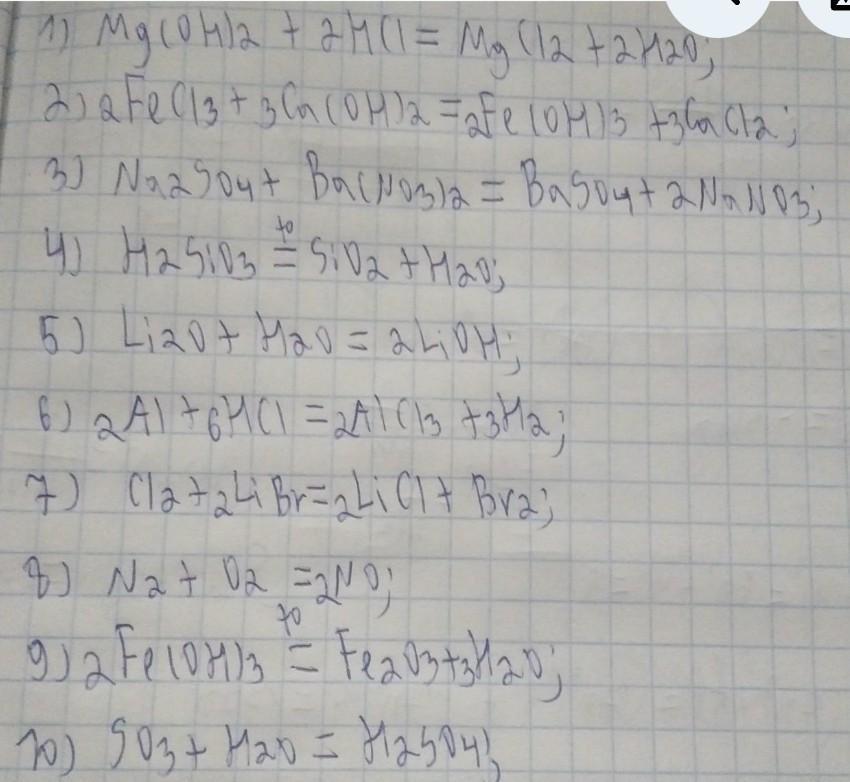 1) Mg(OH)2 + 2HCl = MgCl2 + 2H2O;
2) 2FeCl3 + 3Ca(OH)2 = 2Fe(OH)3 + 3CaCl2;
3) Na2SO4 + Ba(NO3)2 = BaSO4 + 2NaNO3;
4) H2SiO3 t° = SiO2 + H2O;
5) Li2O + H2O = 2LiOH;
6) 2Al + 6HCl = 2AlCl3 + 3H2;
7) Cl2 + 2LiBr = 2LiCl + Br2;
8) N2 + O2 = 2NO;
9) 2Fe(OH)3 t° = Fe2O3 + 3H2O;
10) SO3 + H2O = H2SO4;